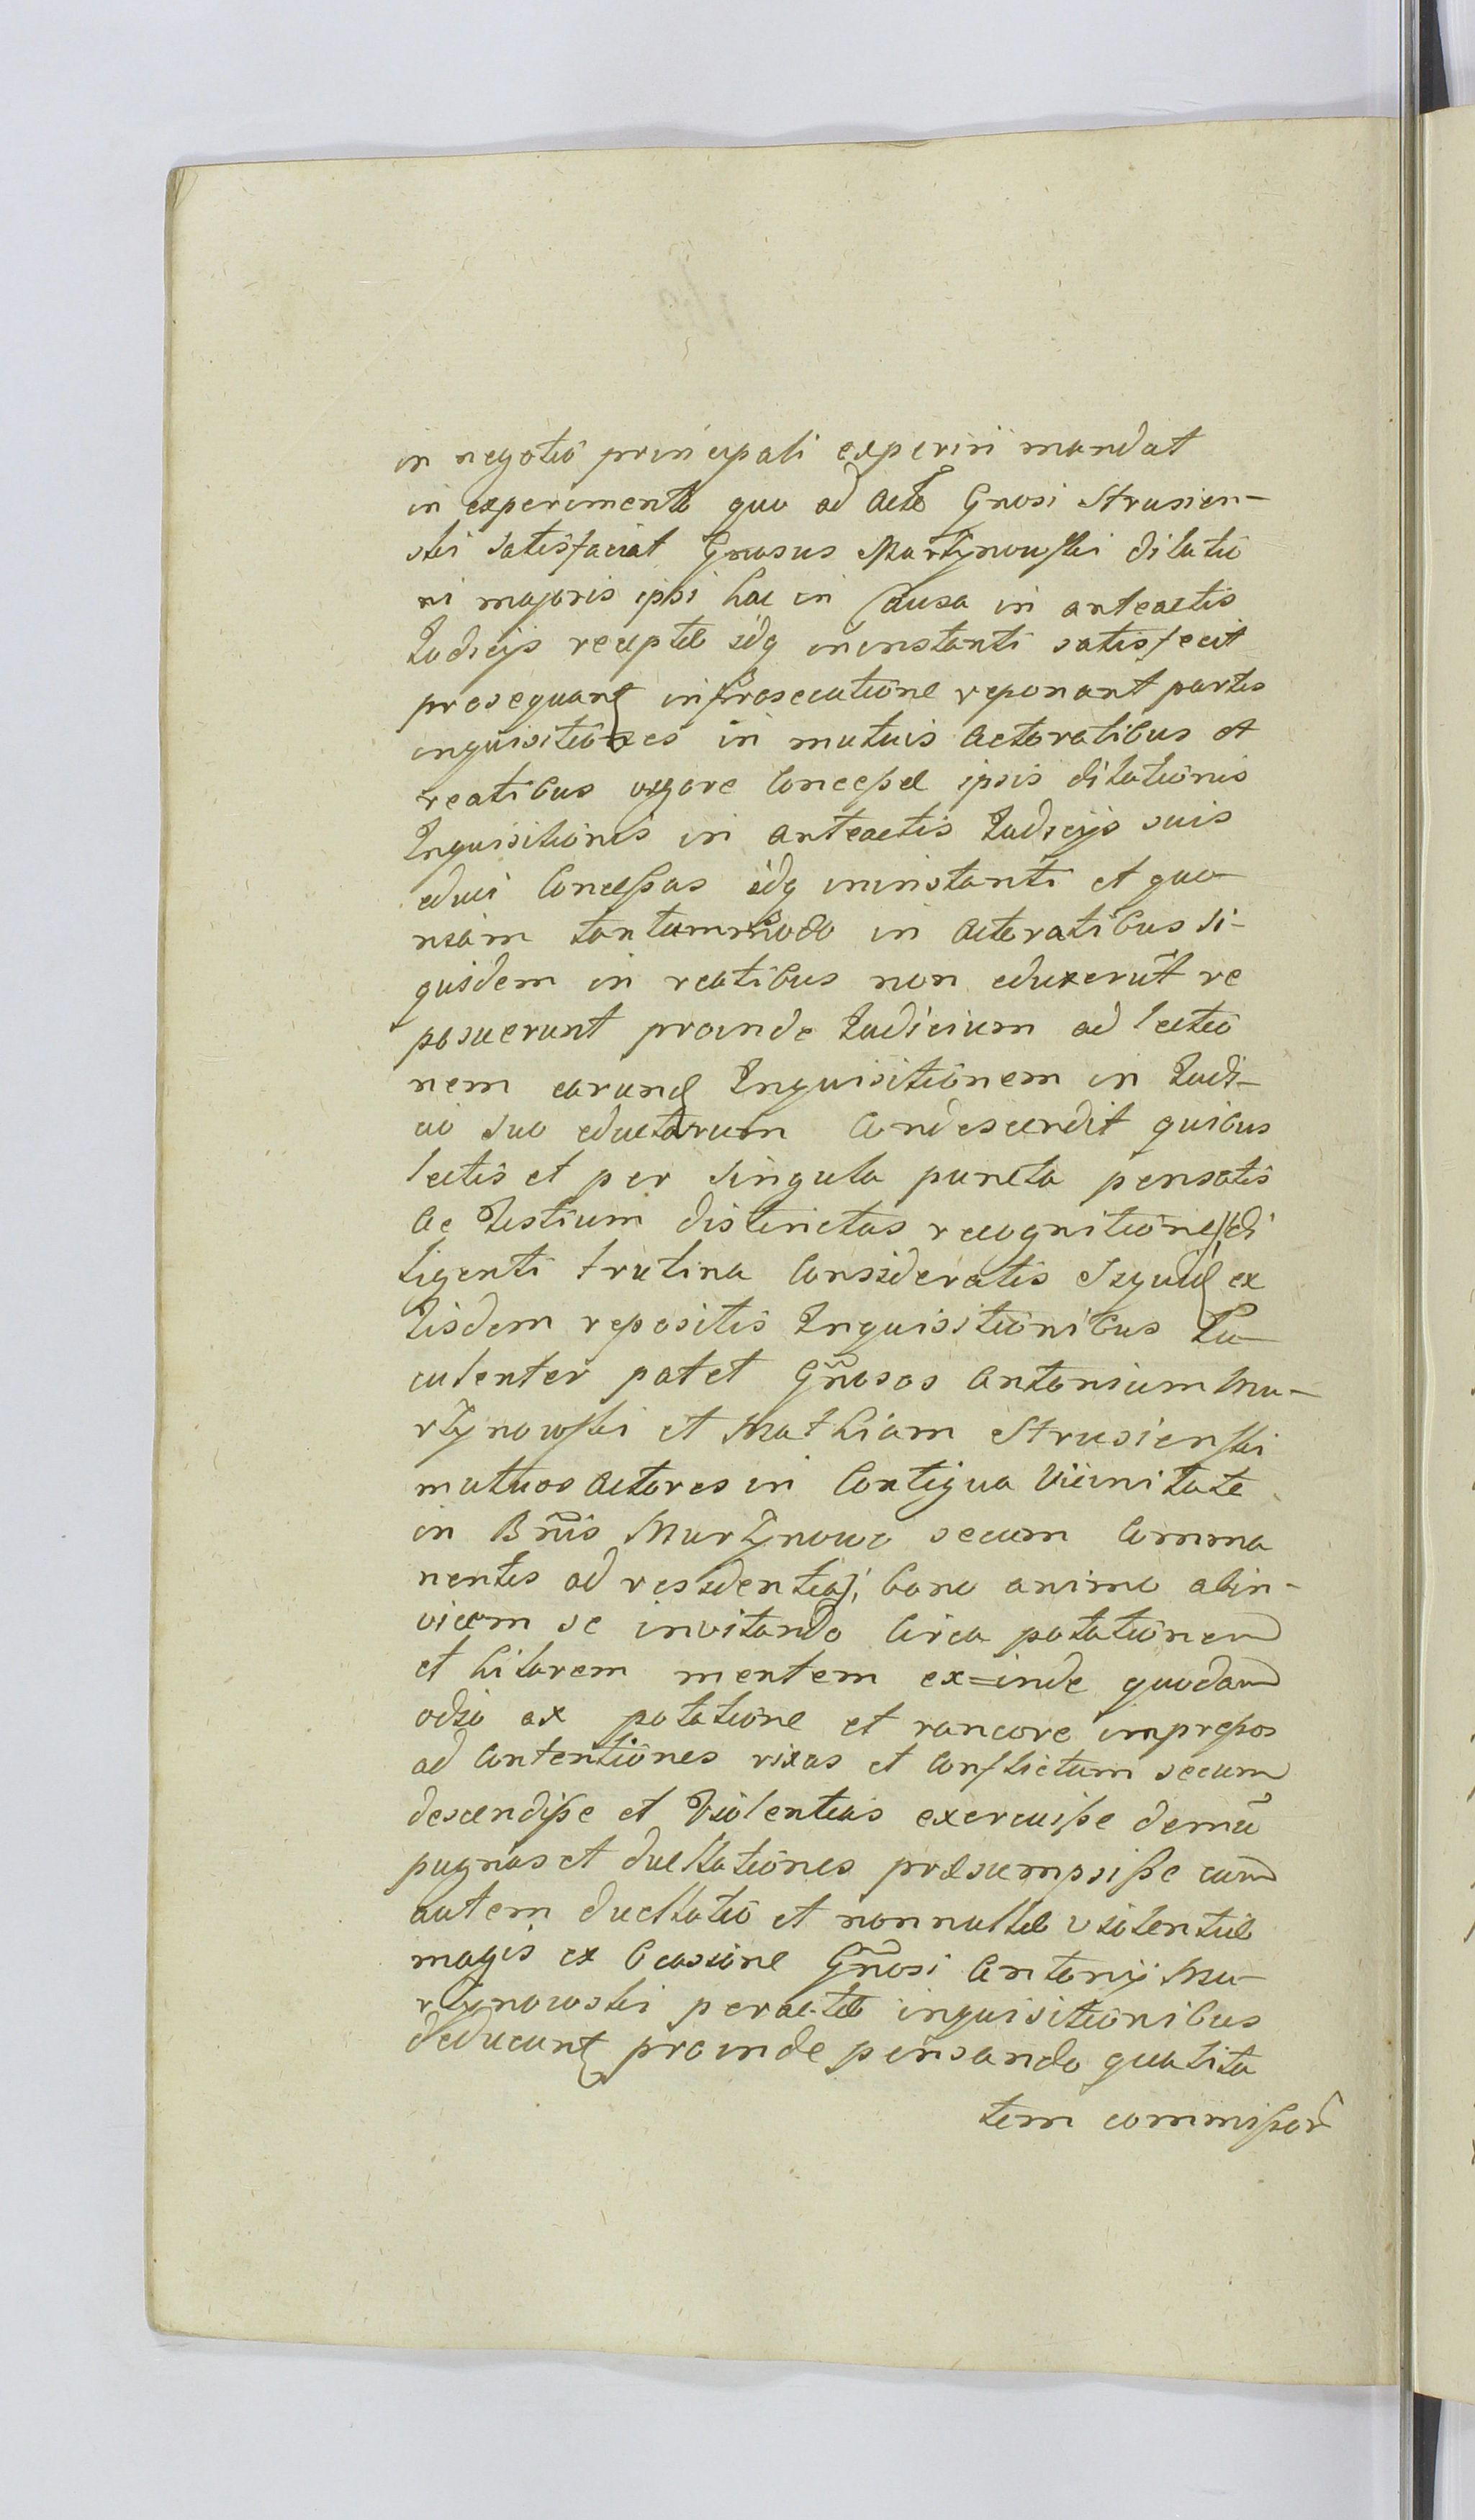 in negotio principali experiri mandat
in experimento quo ad Acto Gnosi Strusien-
ski satisfaciat Gnosus Martynowski dilatio
ni majoris ipsi hac in Causa in anteactis
Judicijs receptæ idq ininstanti satisfecit
prosequant inprosecutione reponant partes
inquisitiones in mutuis Actoratibus et
reatibus vigore Concessæ ipsis dilationis
Inquisitionis in anteactis Judicijs suis
educi Concessas idq ininstanti et quo
niam tantummodo in Actoratibus si-
quidem in reatibus non eduxerūt re
posuerunt proinde Judicium ad lectio
nem earund Inquisitionem in Judi-
cio suo eductarum Condescendit quibus
lectis et per singula puncta pensatis
Ac Testium distinctas recognitiones di
ligenti trutina Consideratis Siquid ex
Iisdem repositis Inquisitionibus Lu-
culenter patet Gnosos Antonium Mar-
tynowski et Mathiam Strusienski
mutuos Actores in Contigua Vicinitate
in Bnis Martynowo secum Comma
nentes ad residentias bono animo abin-
vicem se invitando Circa potationem
et hilarem mentem ex=inde quodam
odio ex potatione et rancore impressos
ad Contentiones rixas et Conflictum secum
descendisse et Violentias exercuisse demū
pugnas et duellationes præsumpsisse cum
autem duellatio et nonnullæ violentiæ
magis ex Occasione Gnosi Antonij Ma-
rtynowski peractæ inquisitionibus
deducunt proinde pensando qualita
tem commissor